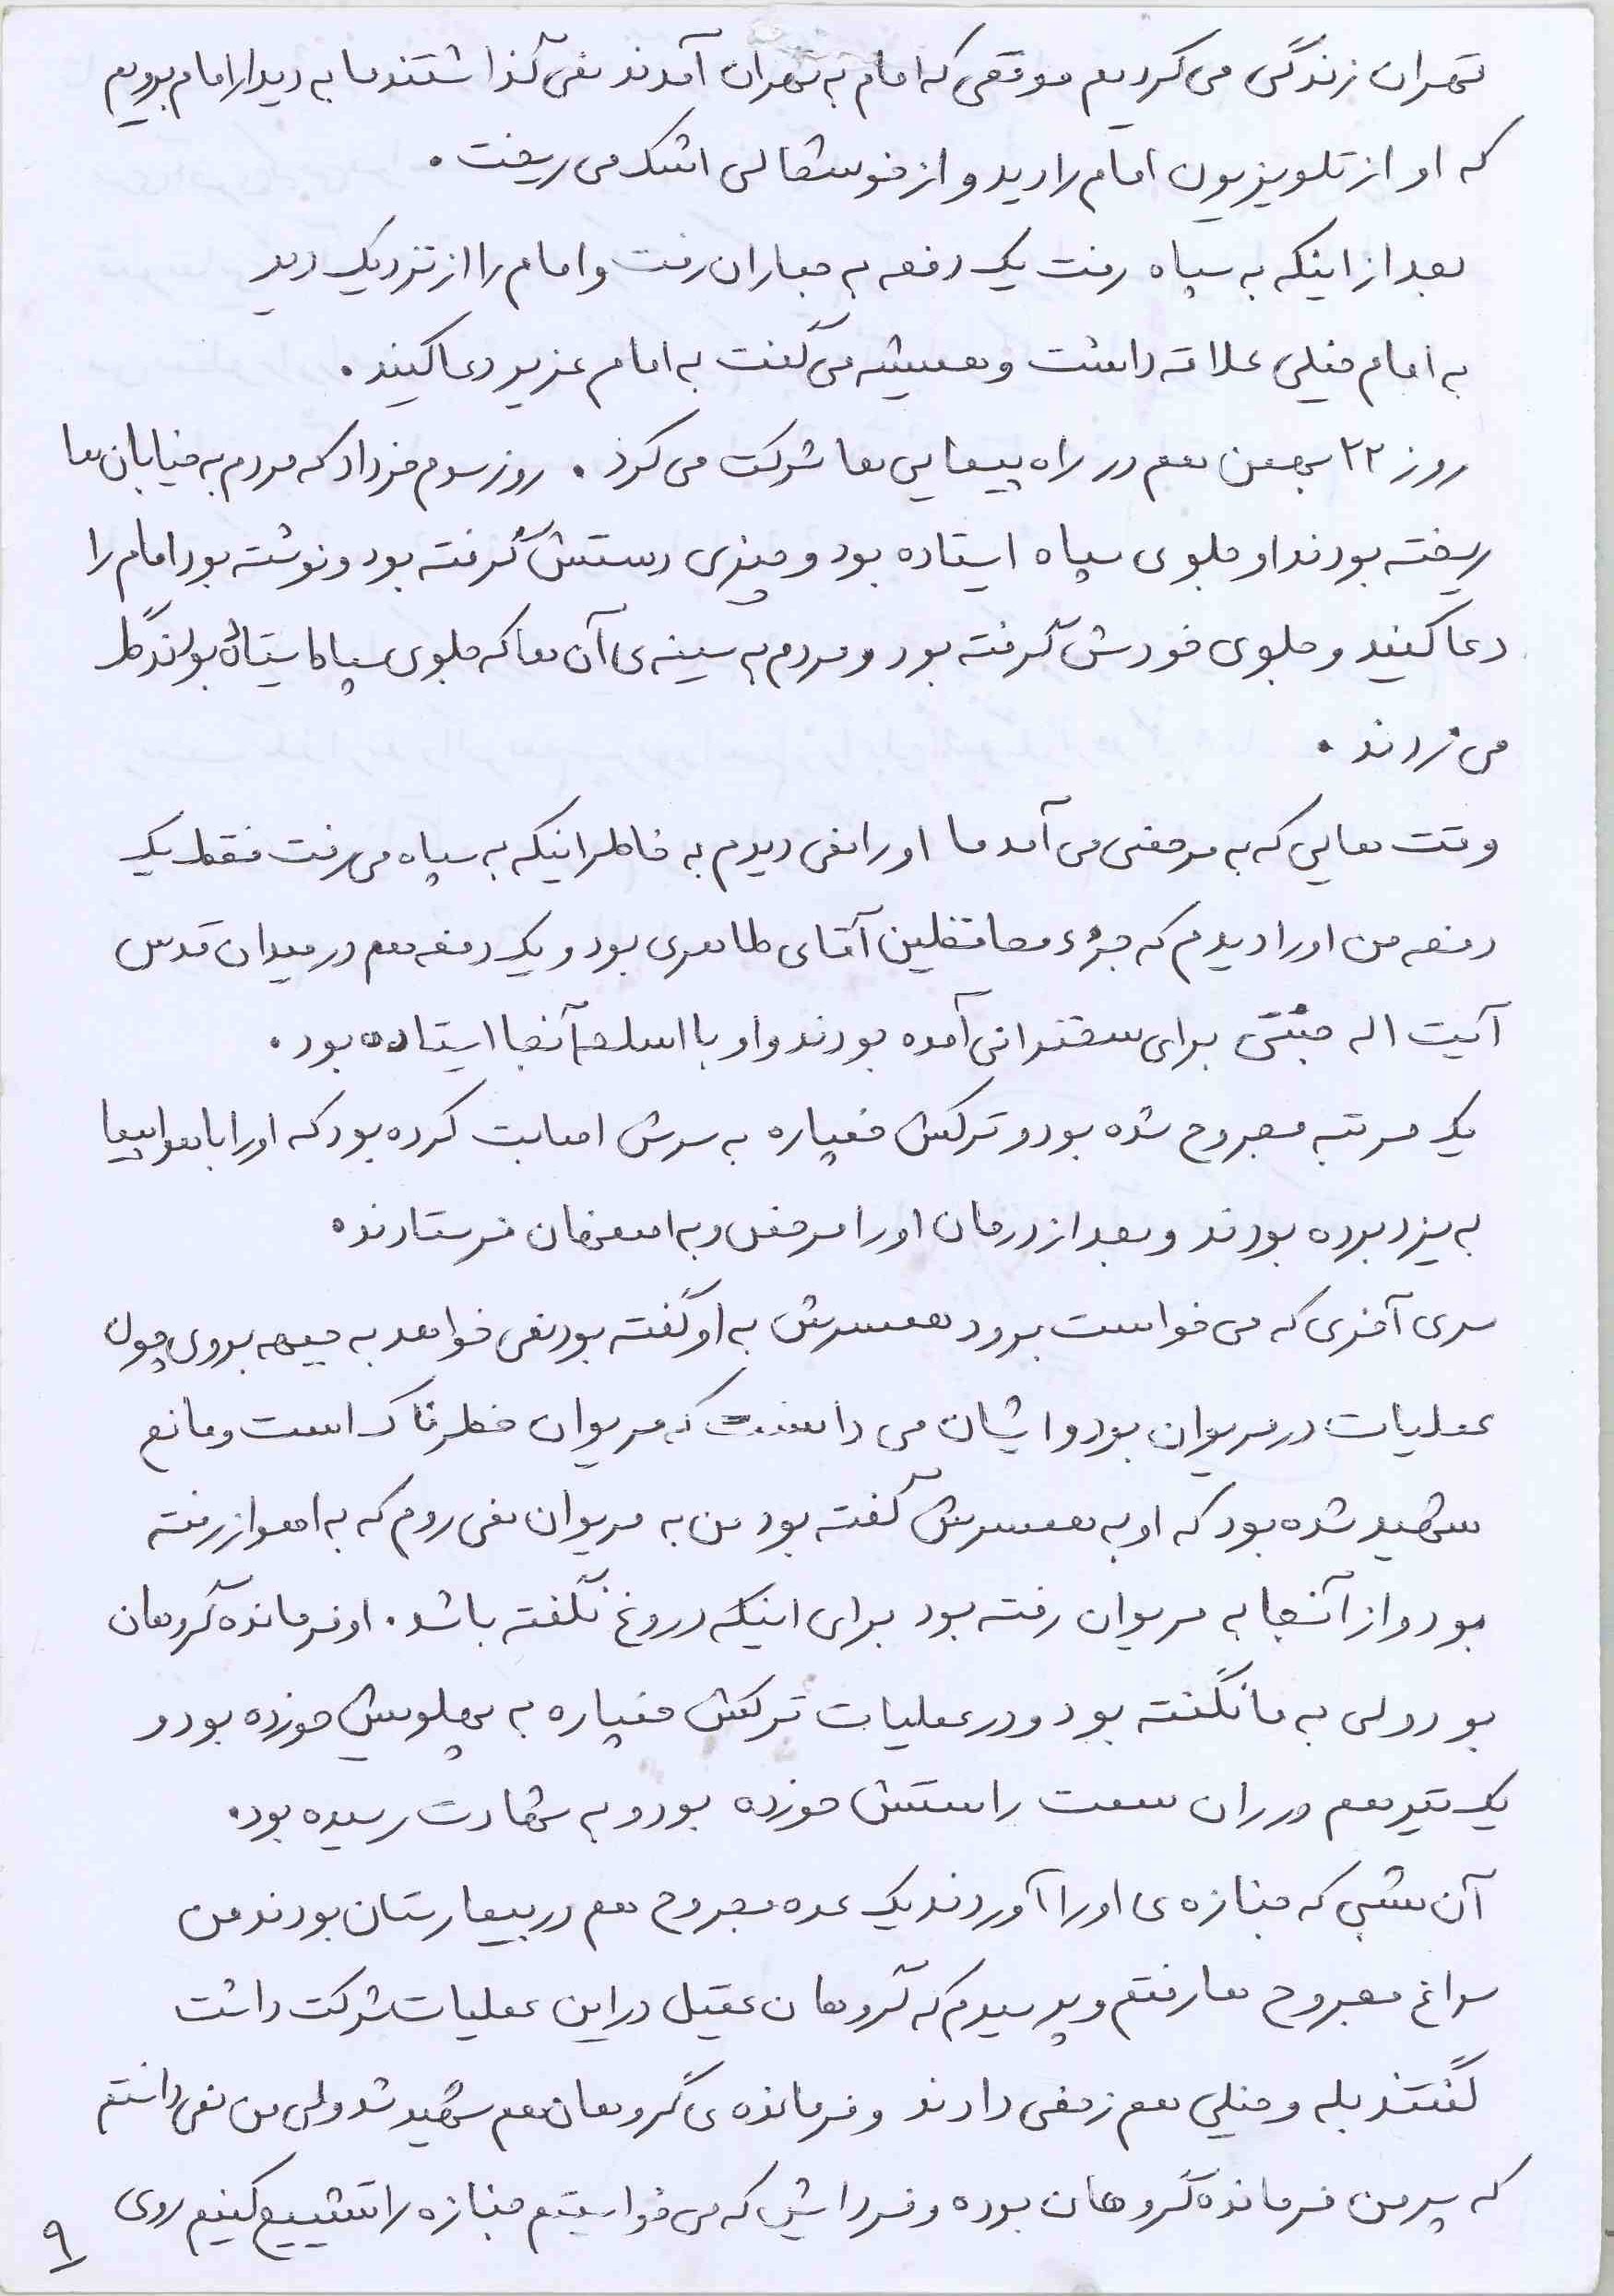 تهران زندگی می کردیم موقعی که امام به تهران آمدند نمی گذاشتند ما به دیدار امام برویم
که او از تلویزیون امام را دید و از خوشحالی اشک می ریخت .
بعد از اینکه به سپاه رفت یک دفعه به جماران رفت و امام را از نزدیک دید
به امام خیلی علاقه داشت و همیشه می گفت به امام عزیز دعا کنید .
روز ۲۲ بهمن هم در راه پیمایی ها شرکت می کرد . روز سوم خرداد که مردم به خیابان ها
ریخته بودند او جلوی سپاه ایستاده بود و چیزی دستش گرفته بود و نوشته بود امام را
دعا کنید و جلوی خودش گرفته بود و مردم به سینه ی آن ها که جلوی سپاه ایستاده بودند گل
می زدند .
وقت هایی که به مرخصی می آمد ما او را نمی دیدم به خاطر اینکه به سپاه می رفت فقط یک
دفعه من او را دیدم که جزء محافظین آقای طاهری بود و یک دفعه هم در میدان قدس
آیت اله جنتی برای سخنرانی آمده بودند و او با اسلحه آنجا ایستاده بود .
یک مرتبه مجروح شده بود و ترکش خمپاره به سرش اصابت کرده بود که او را با هواپیما
به یزد برده بودند و بعد از درمان او را مرخص و به اصفهان فرستادند .
سری آخری که می خواست برود همسرش به او گفته بود نمی خواهد به جبهه بروی چون
عملیات در مریوان بود و ایشان می دانست که مریوان خطرناک است و مانع
شهید شده بود که او به همسرش گفته بود من به مریوان نمی روم که به اهواز رفته
بود و از آنجا به مریوان رفته بود برای اینکه دروغ نگفته باشد . او فرمانده گروهان
بود ولی به ما نگفته بود و در عملیات ترکش خمپاره به پهلویش خورده بود و
یک تیر هم در ران سمت راستش خورده بود و به شهادت رسیده بود .
آن شبی که جنازه ی او را آوردند یک عده مجروح هم در بیمارستان بودند من
سراغ مجروح ها رفتم و پرسیدم که گروهان عقیل در این عملیات شرکت داشت
گفتند بله و خیلی هم زخمی دارند و فرمانده ی گروهان هم شهید شد ولی من نمی دانستم
که پسر من فرمانده گروهان بوده و فردایش که می خواستیم جنازه را تشییع کنیم روی
۹